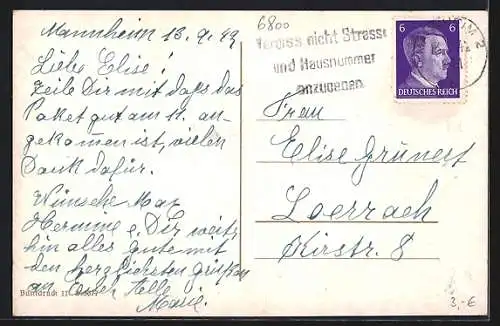 Mannheim 13.9.42
Liebe Elise!
Teile Dir mit daß das
Paket gut am 11. an-
gekommen ist, vielen
Dank dafür.
Wünsche Max
Hermine e. Dir weiter
hin alles gute mit
den herzlichsten grüßen
an Euch Alle
Marie.
6800
Vergiss nicht Strasse
und Hausnummer
anzugeben
6 6
DEUTSCHES REICH
2
Frau
Elise Grünert
Loerrach
Kirstr. 8
3,-€